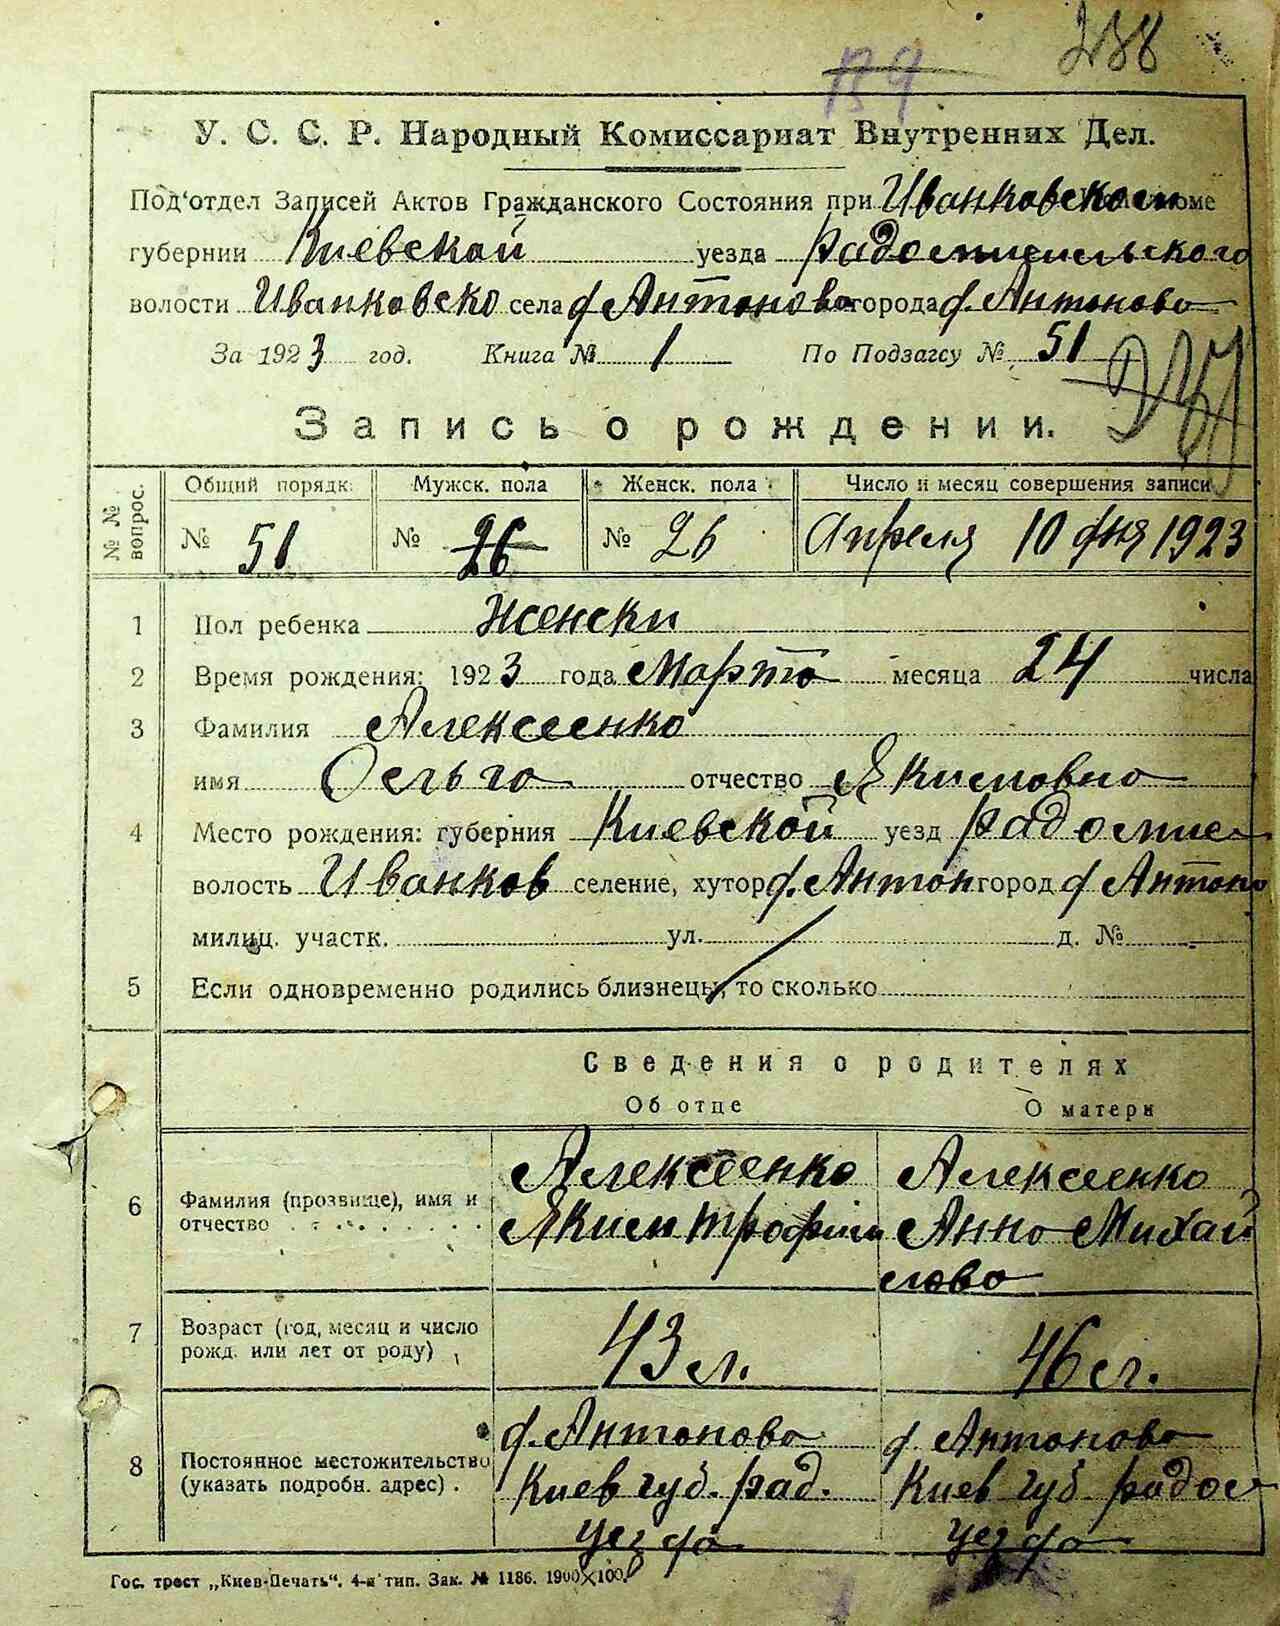 238
У. С. С. Р. Народный Комиссариат Внутренних Дел.
Под'отдел Записей Актов Гражданского Состояния при Иванковском
губернии Киевской уезда Радомисельского
волости Иванковско села д Антоново города д. Антоново
За 1923 год. Книга № 1 По Подзагсу № 51
Запись о рождении.
№ № вопрос. Общий порядк. Мужск. пола Женск. пола Число и месяц совершения записи
№ 51 № 26 № 26 Апреля 10 дня 1923
1 Пол ребенка Женски
2 Время рождения: 1923 года Марта месяца 24 числа
3 Фамилия Алексеенко
имя Ольга отчество Якимовна
4 Место рождения: губерния Киевской уезд Радомис
волость Иванков селение, хутор д. Антон город д Антоно
милиц. участк. ул. д. №
5 Если одновременно родились близнецы, то сколько
Сведения о родителях
Об отце О матери
6 Фамилия (прозвище), имя и отчество Алексеенко Алексеенко
Яким Трофим Анна Михай
лова
7 Возраст (год, месяц и число рожд. или лет от роду) 43 л. 46 л.
8 Постоянное местожительство (указать подробн. адрес). д. Антоново д. Антоново
Киев губ. Рад. Киев губ Радом
уезда уезда
Гос. трест „Киев-Печать“. 4-я тип. Зак. № 1186. 1900×100.